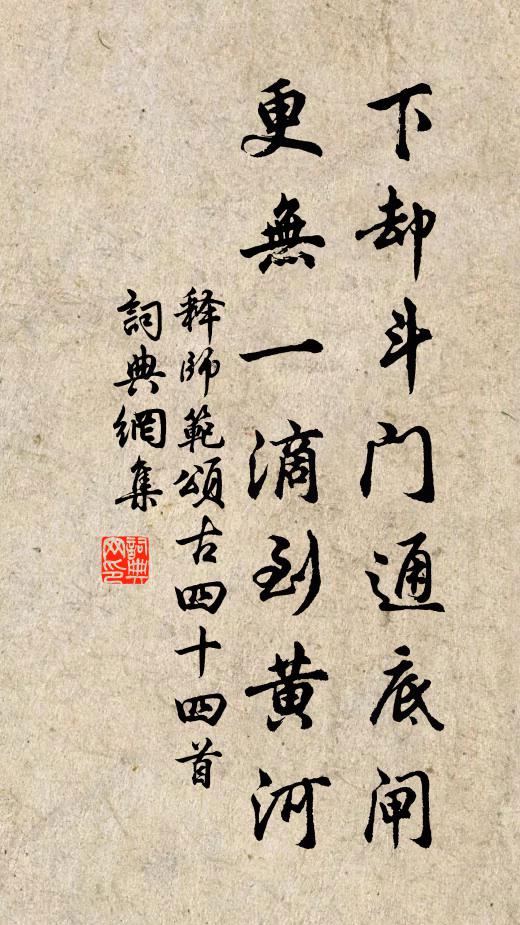 下却斗門通底闸
更無一滴到黄河
释師範頌古四十四首
詞典網集
詞典网印